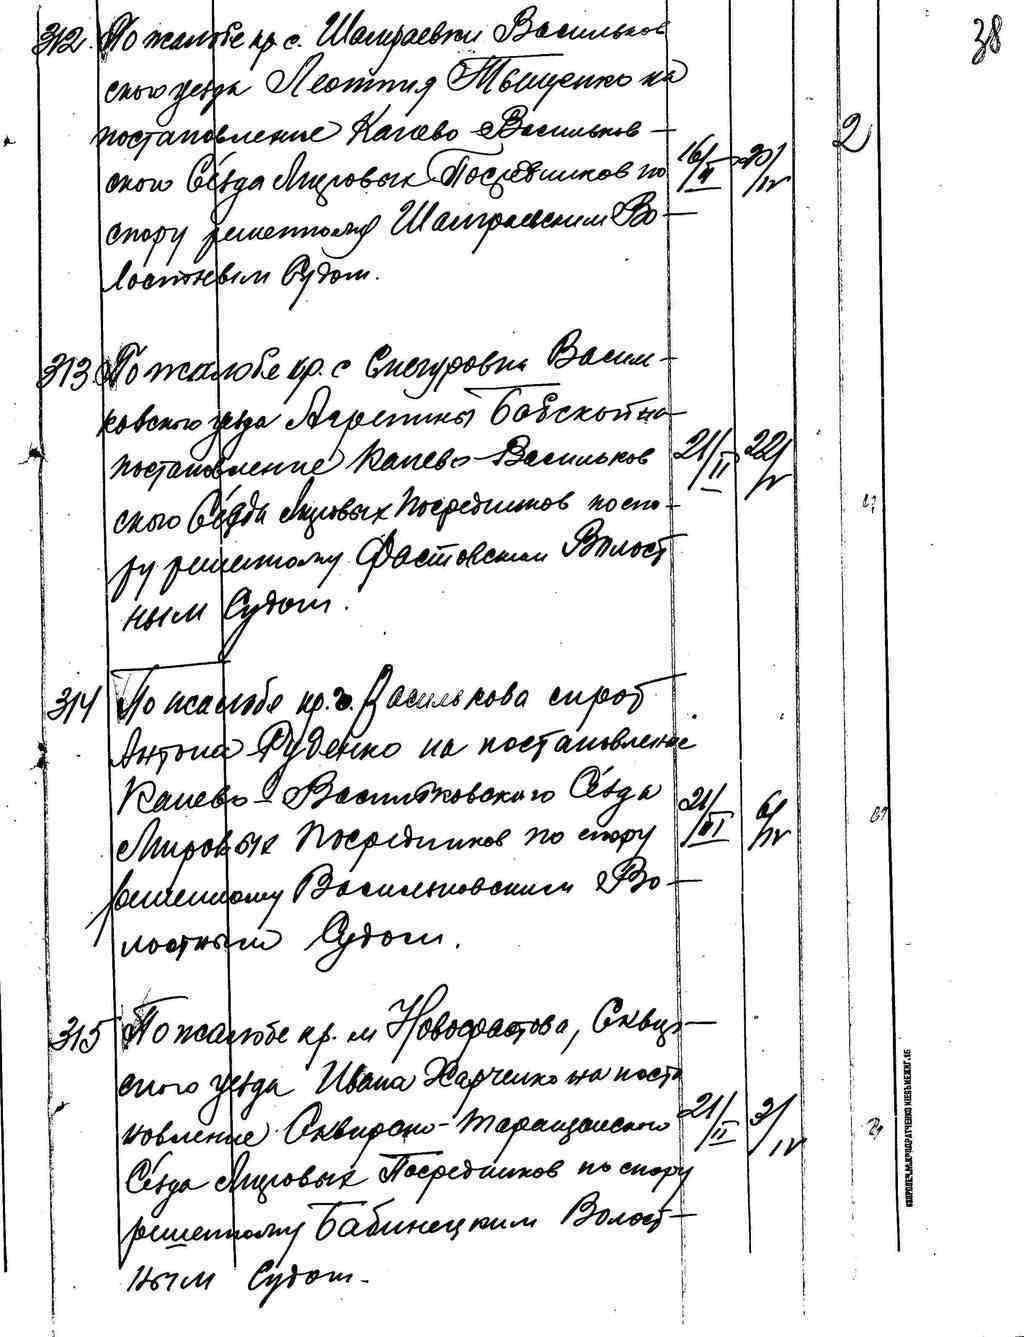 38
312. По жалобе кр. с. Шамраевки Васильков
ского уезда Леонтия Тыщенко на
постановление Канево-Васильков-
ского Съезда Мировых Посредников по
спору решенному Шамраевским Во-
лостным Судом.
16/II
20/IV
2
313 По жалобе кр. с Снегуровки Василь-
ковского уезда Агрепины Бабской на
постановление Канево-Васильков
ского Съезда Мировых Посредников по спо-
ру решенному Фастовским Волост
ным Судом.
21/II
22/V
314 По жалобе кр. г. Василькова сирот
Антона Руденко на постановление
Канево-Васильковского Съезда
Мировых Посредников по спору
решенному Васильковским Во-
лостным Судом.
21/III
6/IV
315 По жалобе кр. м Новофастова, Сквир-
ского уезда Ивана Харченко на поста
новление Сквирско-Таращанского
Съезда Мировых Посредников по спору
решенному Бабинецким Волост-
ным Судом.
21/II
3/IV